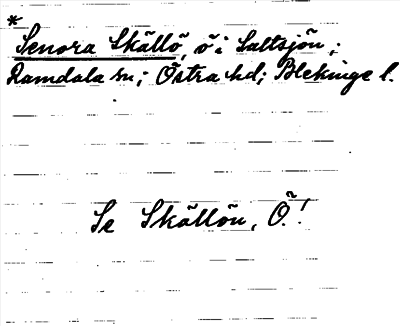 *
Senora Skällö, ö i Saltsjön;
Ramdala sn; Östra hd; Blekinge l.
Se Skällön, Ö.!